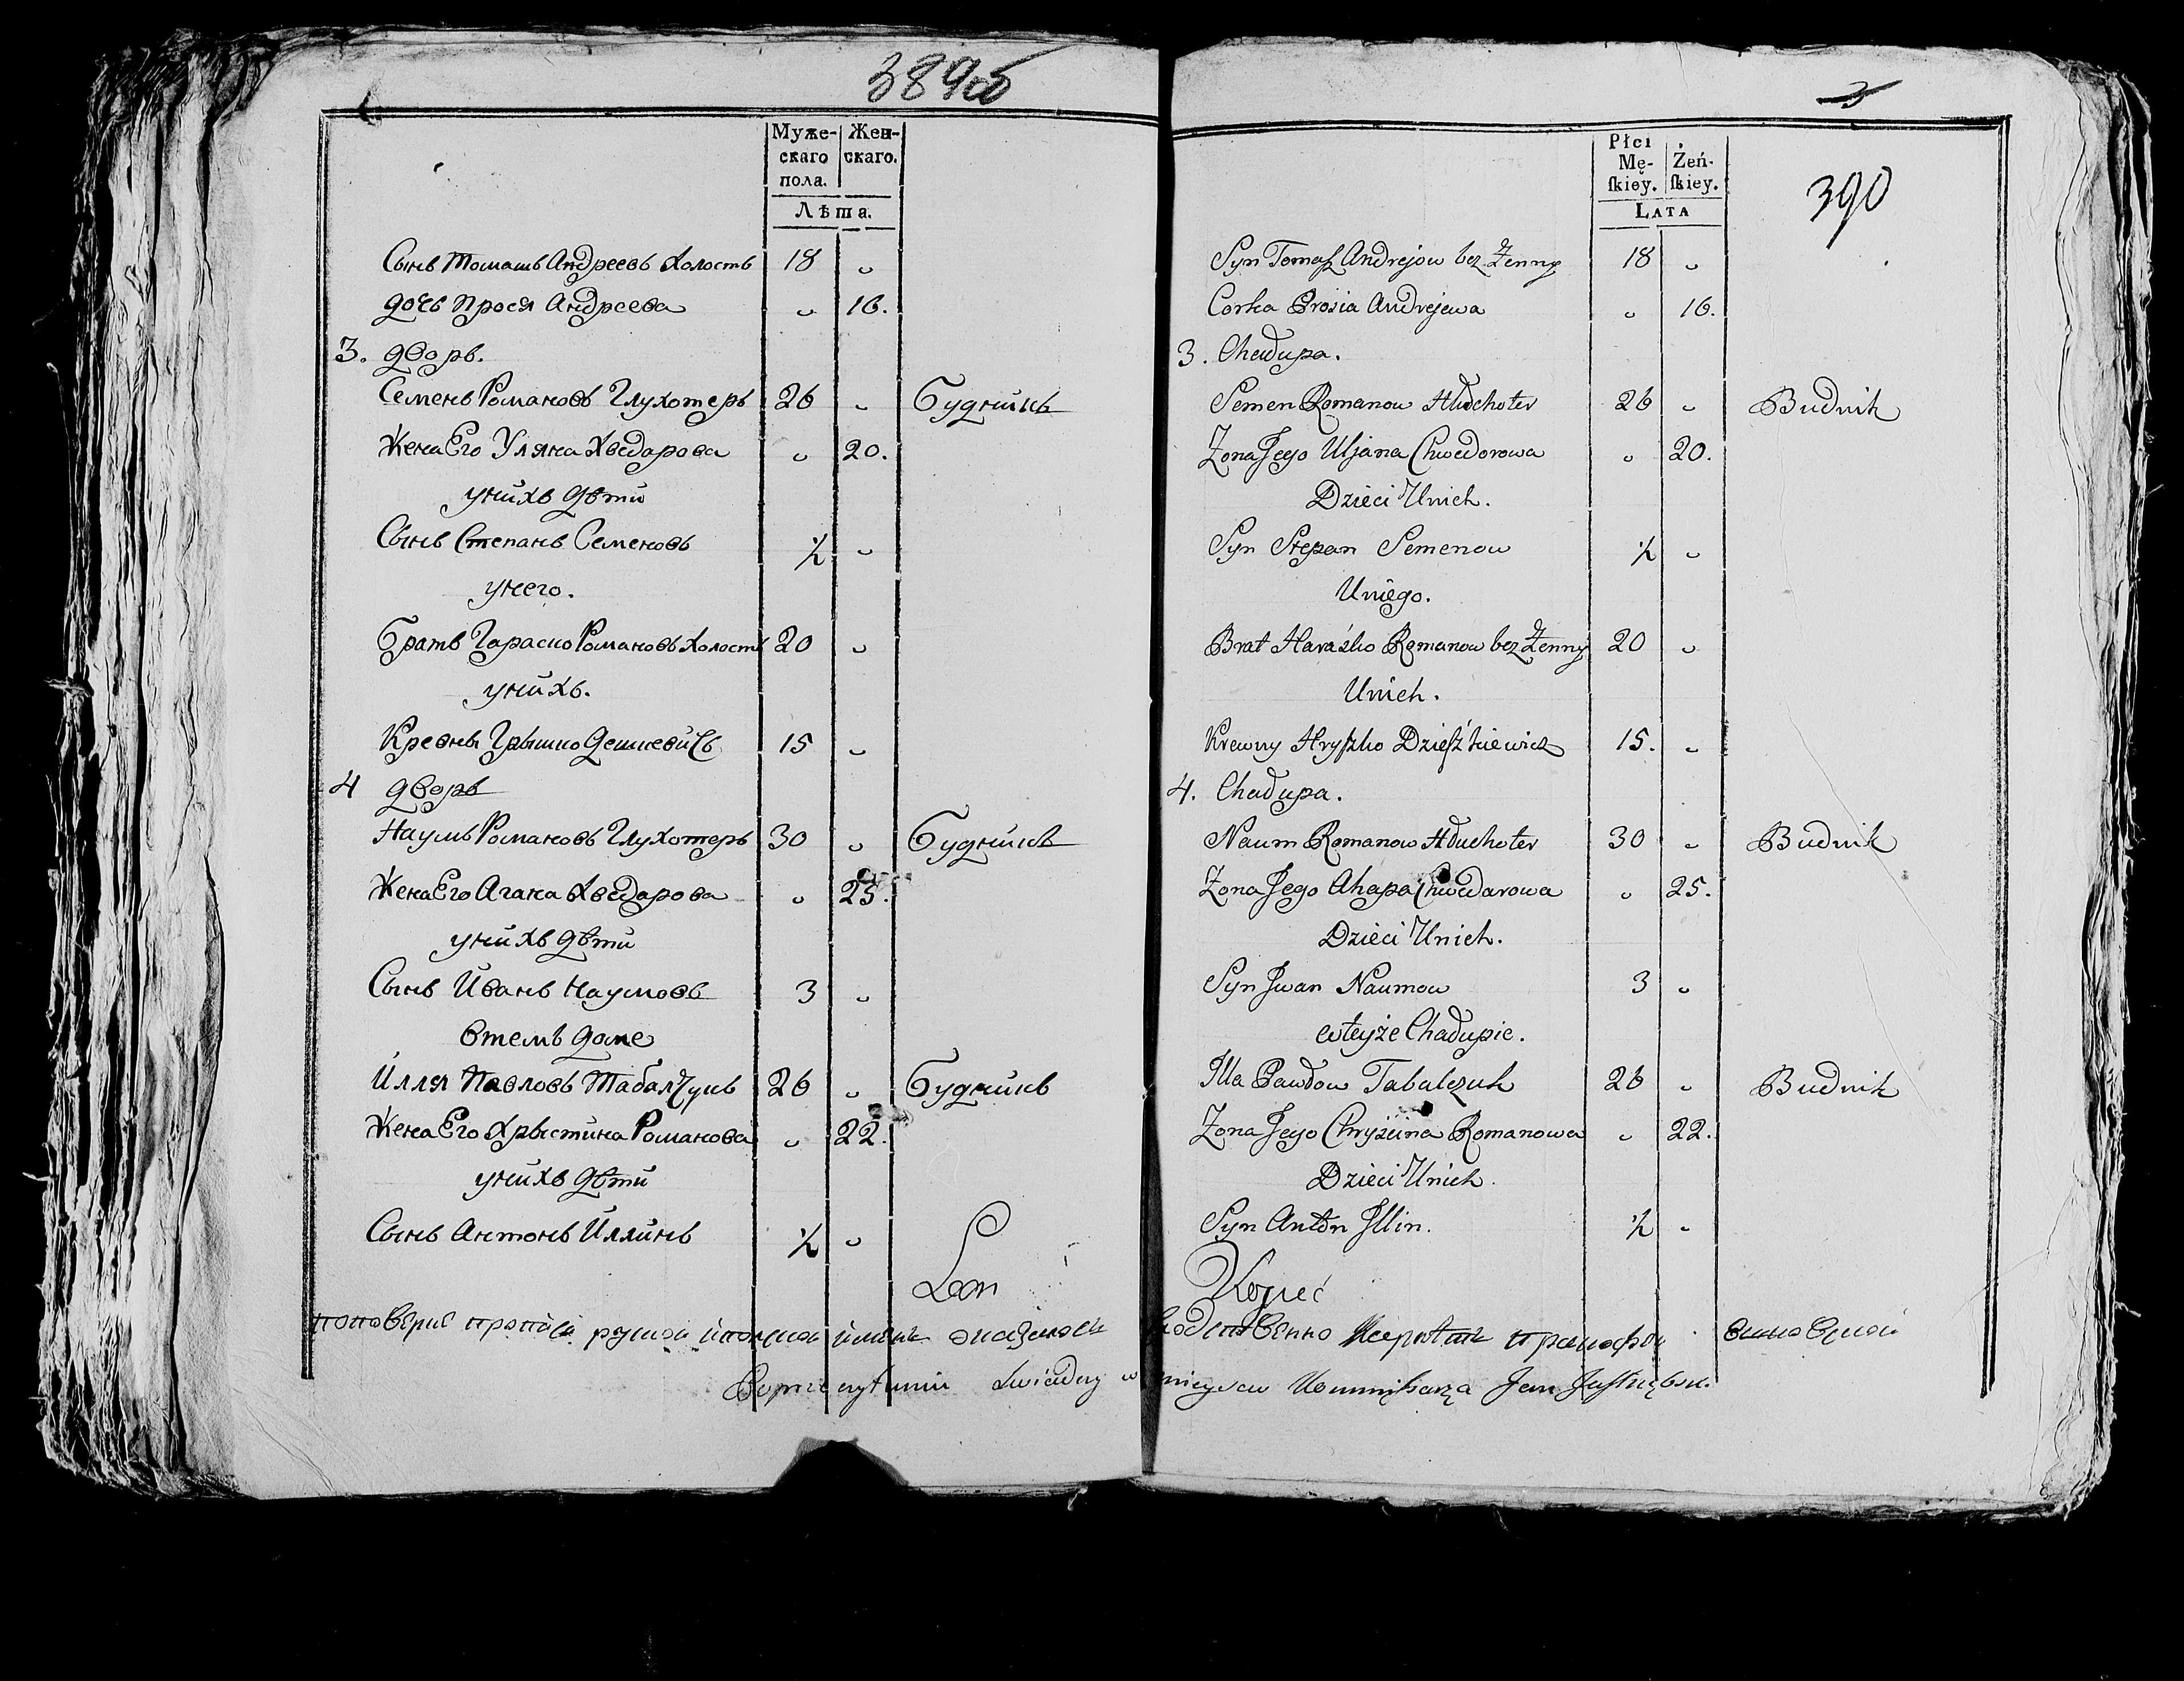 389об
Муже- Жен-
скаго скаго.
пола.
Лѣта.
Сынъ Томашъ Андреевъ Холостъ 18 „
дочь Прося Андреева „ 16.
3. дворъ.
Семенъ Романовъ Глухотеръ 26 „ Будникъ
Жена Его Уляна Хведарова „ 20.
унихъ дѣти
Сынъ Степанъ Семеновъ ½ „
унего.
Братъ Гараско Романовъ Холостъ 20 „
унихъ.
Кревны Грышко Дешкевичъ 15 „
4 дворъ
Наумъ Романовъ Глухотеръ 30 „ Будникъ
Жена Его Агапа Хведарова „ 25.
унихъ дѣти
Сынъ Иванъ Наумовъ 3 „
втемъ доме
Илля Павловъ Табалчукъ 26 „ Будникъ
Жена Его Хрыстина Романова „ 22.
унихъ дѣти
Сынъ Антонъ Иллинъ ½ „
3
390
Płci
Mę- Żeń-
skiey. skiey.
Lata
Syn Tomasz Andrejow bez Żenny 18 „
Corka Prosia Andrejewa „ 16.
3. Chałupa.
Semen Romanow Hłuchoter 26 „ Budnik
Zona Jego Uljana Chwedorowa „ 20.
Dzieci Unich.
Syn Stepan Semenow ½ „
Uniego.
Brat Haraśko Romanow bez Żenny 20 „
Unich.
Krewny Hryszko Dzieszkiewicz 15. „
4. Chałupa.
Naum Romanow Hłuchoter 30 „ Budnik
Zona Jego Ahapa Chwedarowa „ 25.
Dzieci Unich.
Syn Jwan Naumow 3 „
wteyże Chałupie.
Jlla Pawłow Tabalczuk 26 „ Budnik
Zona Jego Chryścina Romanowa „ 22.
Dzieci Unich.
Syn Anton Jllin. ½ „
Leon Kopeć
w mieyscu Kommissarza Jan